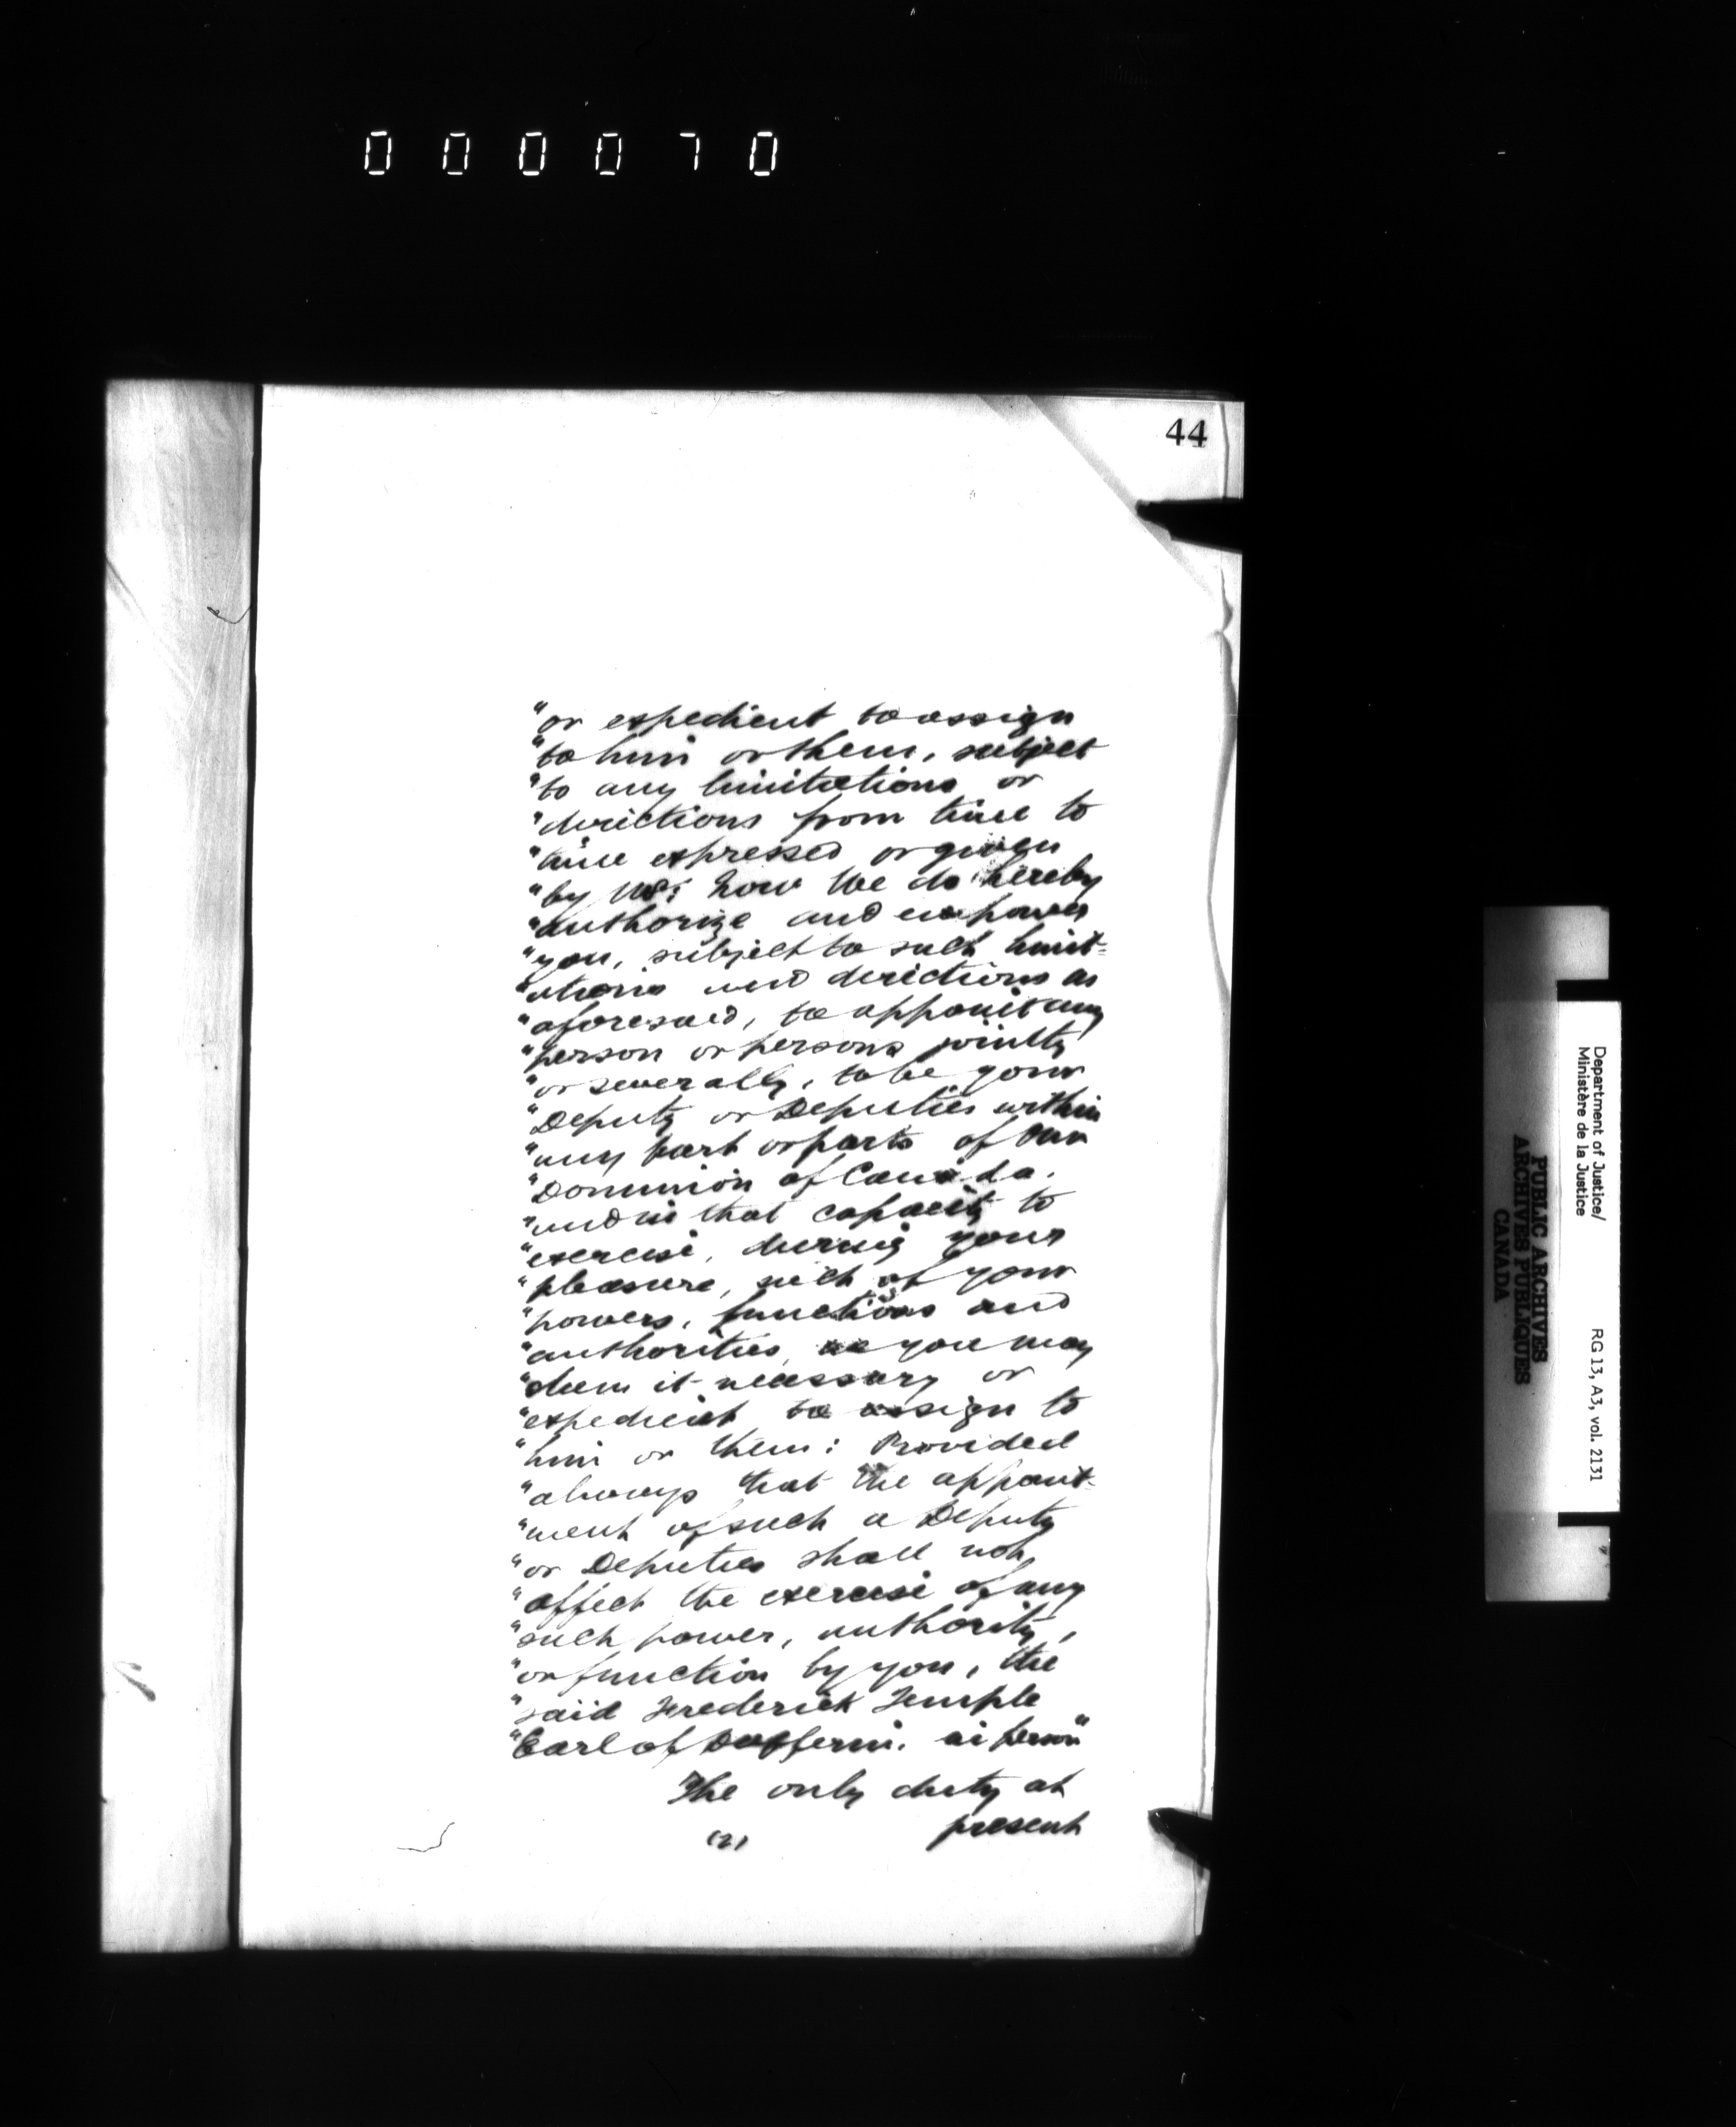 000070
44
"or expedient to assign
"to him or them, subject
"to any limitations or
"directions from time to
"time expressed or given
"by Us; Now We do hereby
"authorize and empower
"you, subject to such limit=
"ations and directions as
"aforesaid, to appoint any
"person or persons jointly
"or severally, to be your
"Deputy or Deputies within
"any part or parts of Our
"Dominion of Canada.
"and in that capacity to
"exercise, during your
"pleasure, such of your
"powers, functions and
"authorities, as you may
"deem it necessary or
"expedient to assign to
"him or them: Provided
"always that the appoint-
"ment of such a Deputy
"or Deputies shall not,
"affect the exercise of any
"such power, authority,
"or function by you, the
"said Frederick Temple
"Earl of Dufferin. in person"
The only duty at
present
(2)
Department of Justice/
Ministère de la Justice
RG 13, A3, vol. 2131
PUBLIC ARCHIVES
ARCHIVES PUBLIQUES
CANADA